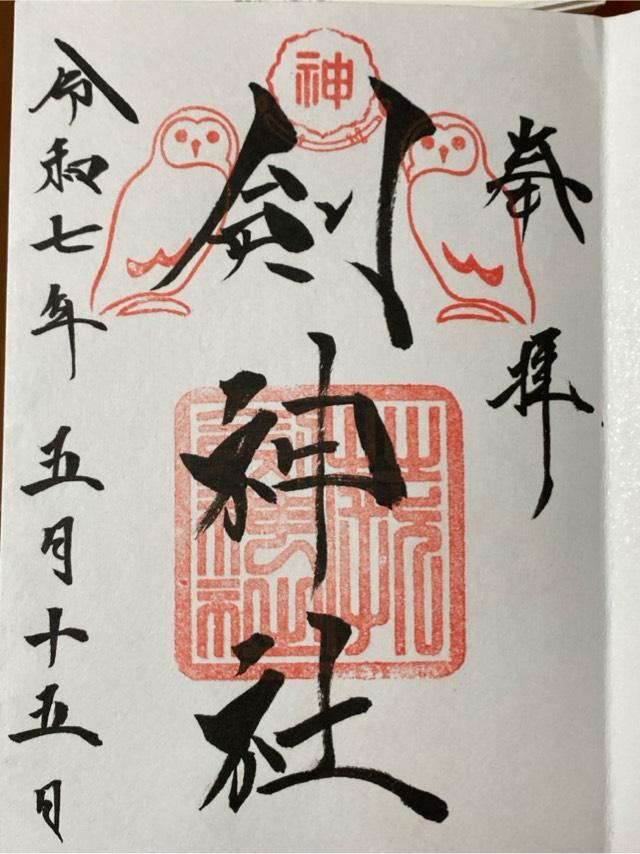 奉拝
神
剣神社
令和七年五月十五日